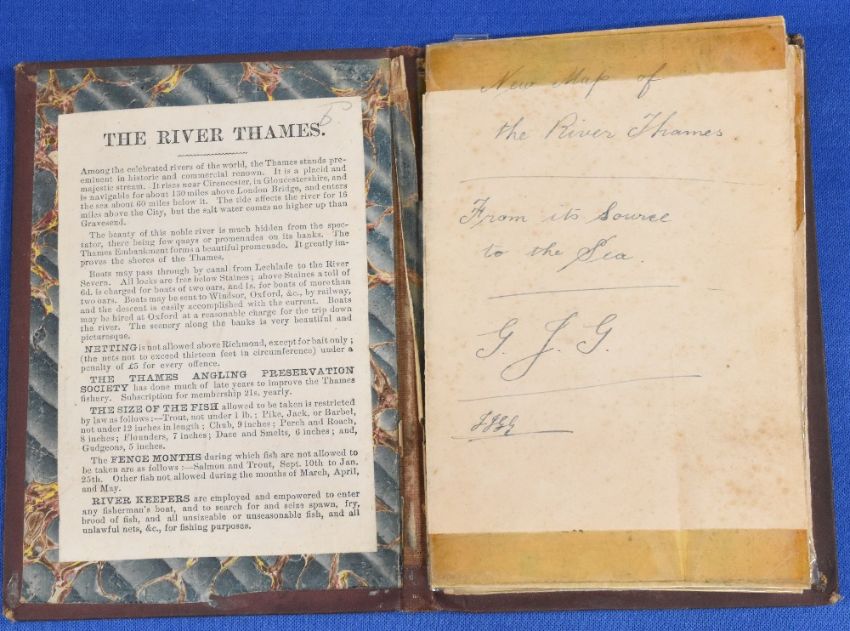 THE RIVER THAMES.
Among the celebrated rivers of the world, the Thames stands pre-
eminent in historic and commercial renown. It is a placid and
majestic stream. It rises near Cirencester, in Gloucestershire, and
is navigable for about 130 miles above London Bridge, and enters
the sea about 60 miles below it. The tide affects the river for 16
miles above the City, but the salt water comes no higher up than
Gravesend.
The beauty of this noble river is much hidden from the spec-
tator, there being few quays or promenades on its banks. The
Thames Embankment forms a beautiful promenade. It greatly im-
proves the shores of the Thames.
Boats may pass through by canal from Lechlade to the River
Severn. All locks are free below Staines; above Staines a toll of
6d. is charged for boats of two oars, and 1s. for boats of more than
two oars. Boats may be sent to Windsor, Oxford, &c., by railway,
and the descent is easily accomplished with the current. Boats
may be hired at Oxford at a reasonable charge for the trip down
the river. The scenery along the banks is very beautiful and
picturesque.
NETTING is not allowed above Richmond, except for bait only;
(the nets not to exceed thirteen feet in circumference) under a
penalty of £5 for every offence.
THE THAMES ANGLING PRESERVATION
SOCIETY has done much of late years to improve the Thames
fishery. Subscription for membership 21s. yearly.
THE SIZE OF THE FISH allowed to be taken is restricted
by law as follows:—Trout, not under 1 lb.; Pike, Jack, or Barbel,
not under 12 inches in length; Chub, 9 inches; Perch and Roach,
8 inches; Flounders, 7 inches; Dace and Smelts, 6 inches; and,
Gudgeons, 5 inches.
The FENCE MONTHS during which fish are not allowed to
be taken are as follows:—Salmon and Trout, Sept. 10th to Jan.
25th. Other fish not allowed during the months of March, April,
and May.
RIVER KEEPERS are employed and empowered to enter
any fisherman's boat, and to search for and seize spawn, fry,
brood of fish, and all unsizeable or unseasonable fish, and all
unlawful nets, &c., for fishing purposes.
New Map of
the River Thames
From its Source
to the Sea.
G. J. G.